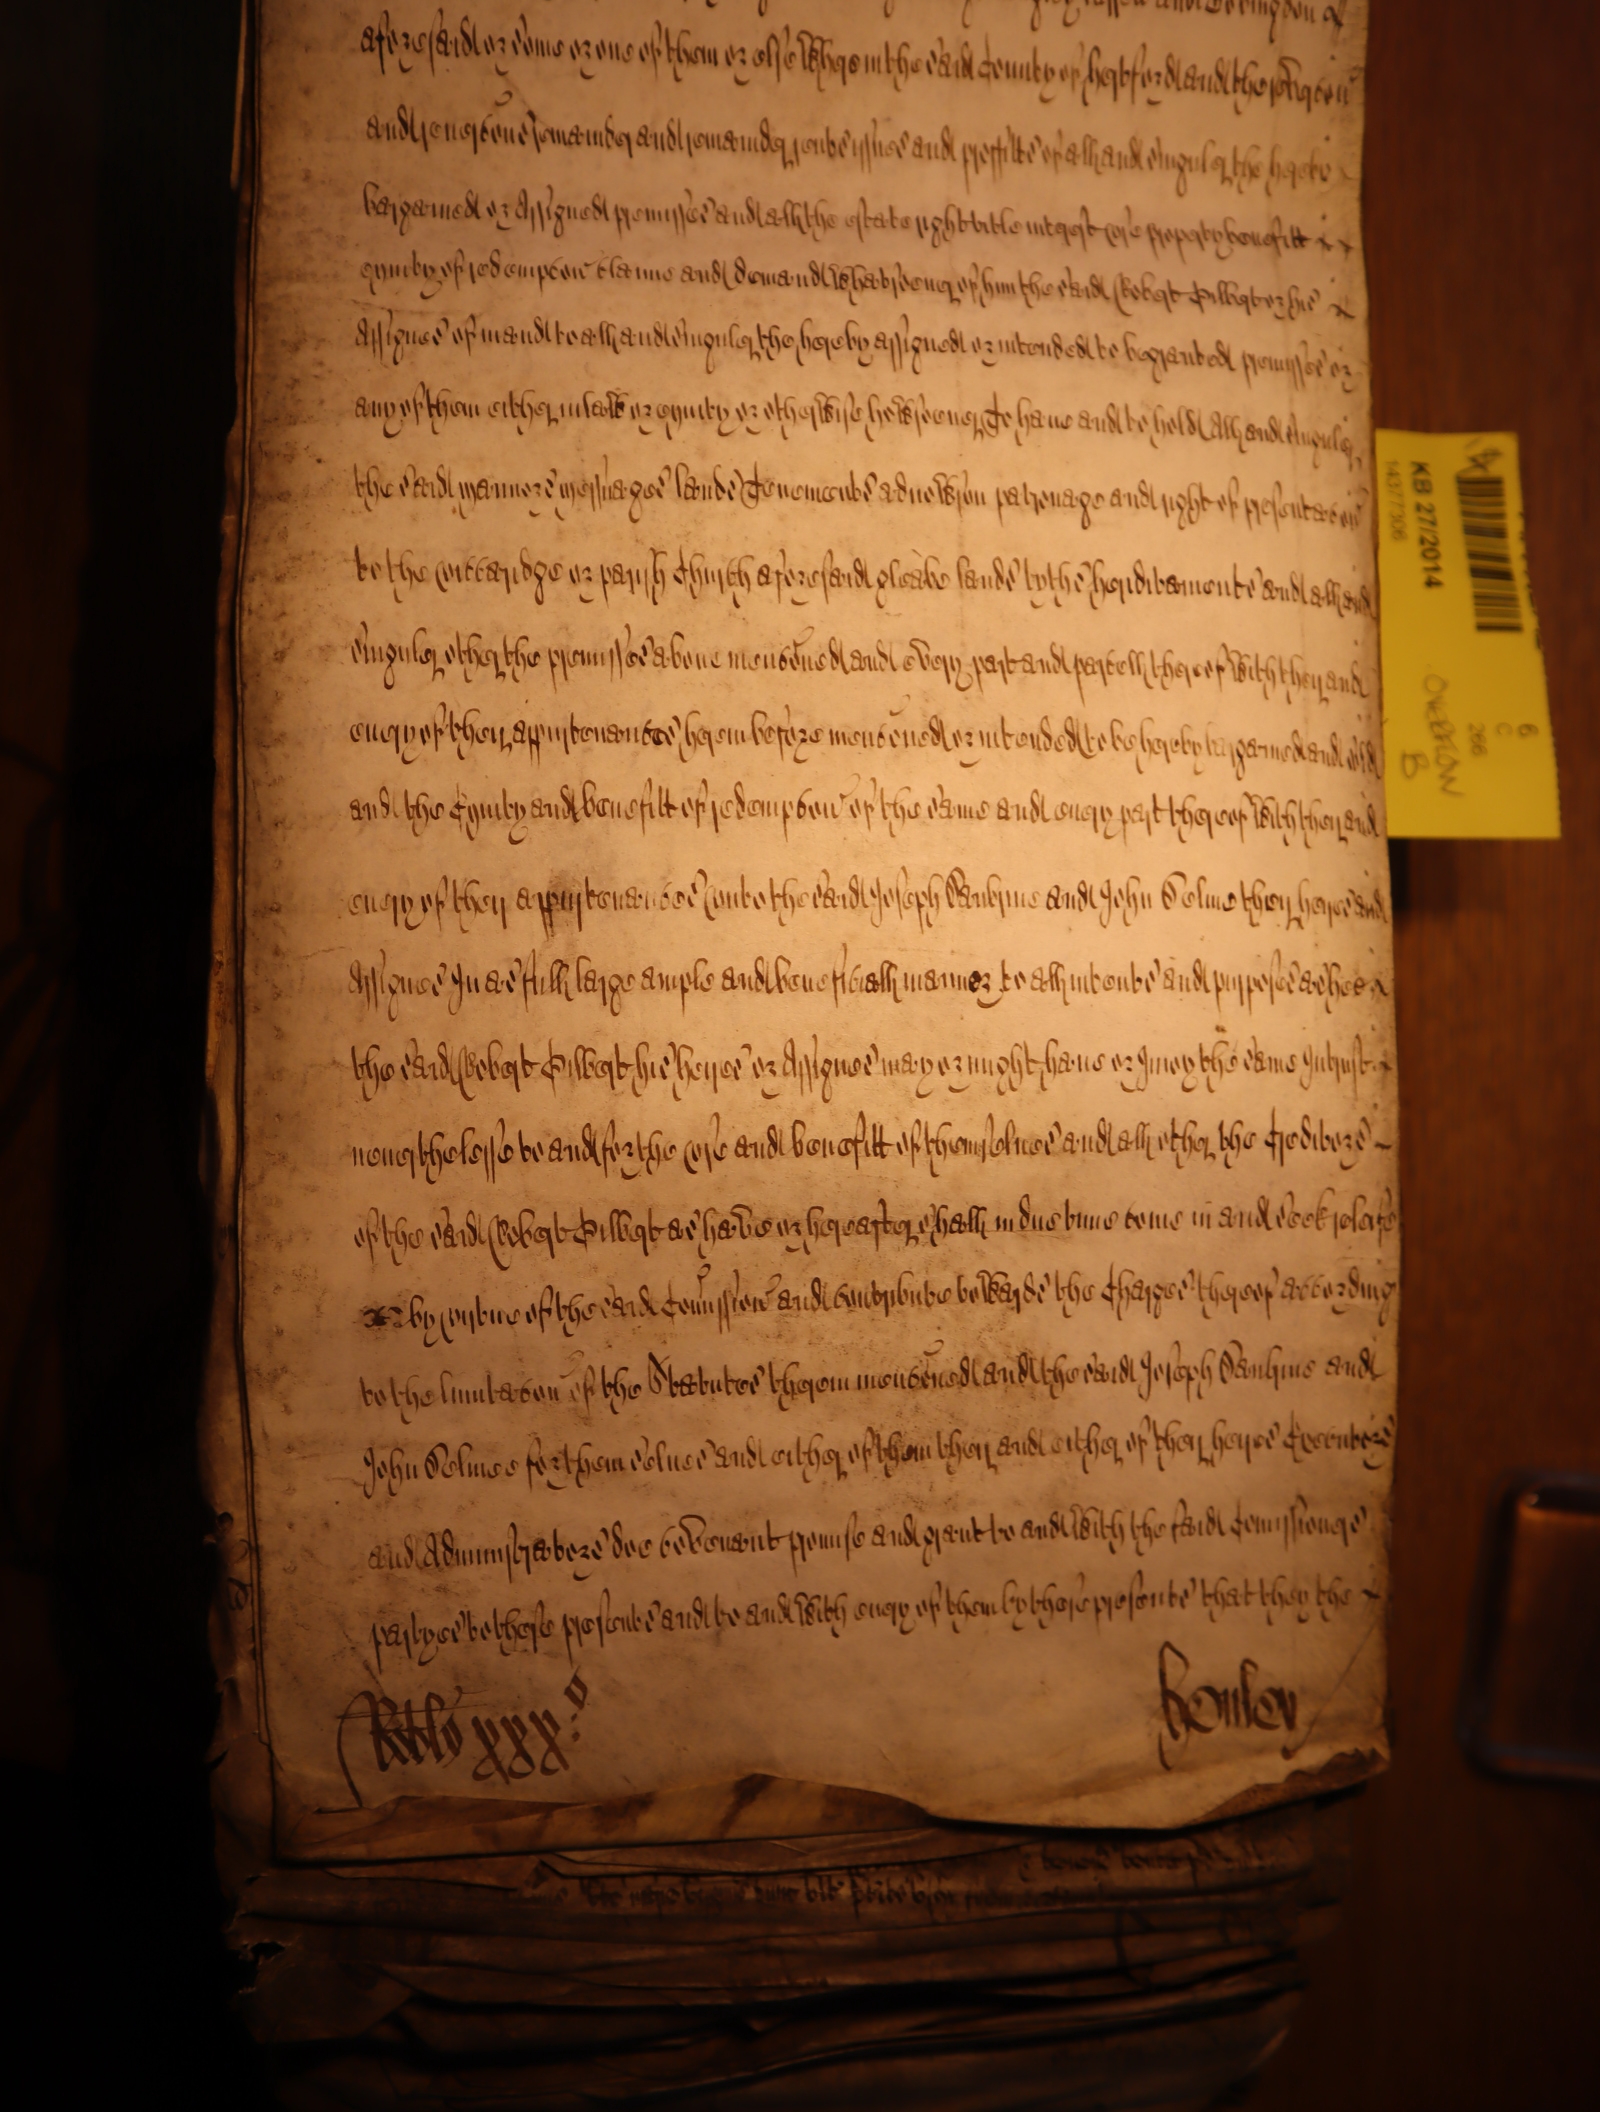 aforesaid or some or one of them or elsewhere in the said County of hertford and the reverc̃on
and reverc̃ons remainder and remainders rents issues and proffitts of all and singuler the hereby
bargained or Assigned premisses and all the estate right title interest use property benefitt
equity of redempc̃on claime and demand whatsoever of him the said Robert Pilbert or his
Assignes of in and to all and singuler the hereby assigned or intended to be granted premisses or
any of them either in law or equity or otherwise howsoever To have and to hold All and singuler
the said mannors messuages lands Tenements advowson patronage and right of presentac̃on
to the viccaridge or parish Church aforesaid gleabe lands tyths hereditaments and all and
singuler other the premisses above menc̃oned and every part and parcell thereof with their and
every of their appurtenances herein before menc̃oned or intended to be hereby bargained and sold
and the Equity and benefitt of redempc̃on of the same and every part thereof with their and
every of their appurtenances unto the said Joseph and John their heires and
Assignes In as full large ample and beneficiall manner to all intents and purposes as hee
the said Robert Pilbert his heires or Assignes may or might have or Injoy the same In trust
neverthelesse to and for the use and benefitt of themselves and all other the Creditors
of the said Robert Pilbert as have or hereafter shall in due time come in and seek releife
by vertue of the said Com̃ission and contribute towards the Charges thereof according
to the limitac̃on of the Statutes therein menc̃oned and the said Joseph and
John for themselves and either of them their and either of their heires Executors
and Administrators doe covenant promise and grant to and with the said Com̃issioners
partyes to these presents and to and with every of them by these presents that they the
Rotlo xxx:o
henley
KB 27/2014
1437306
OVERFLOW
B
6
C
266